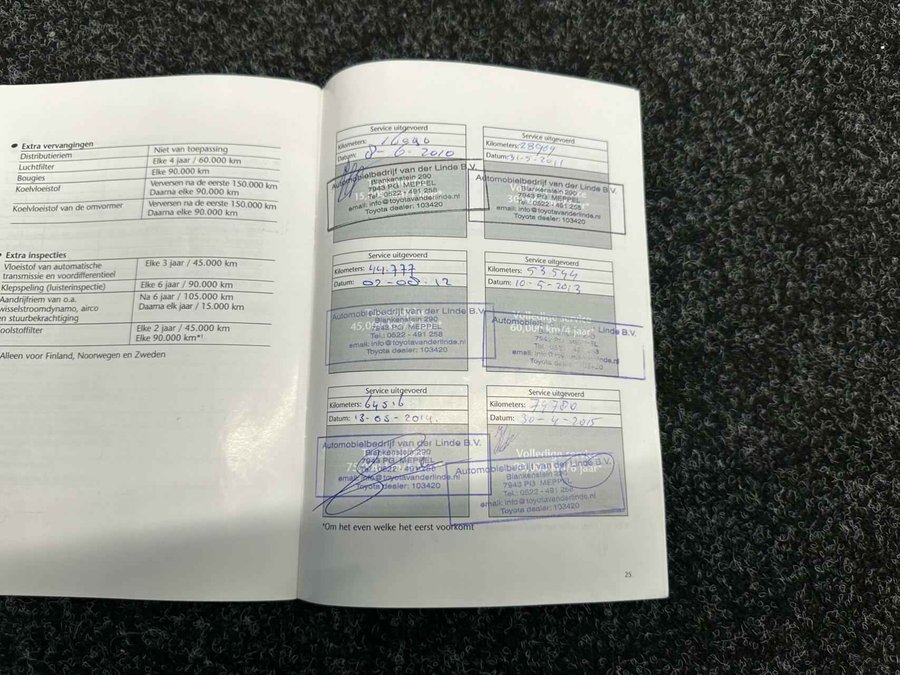 Extra vervangingen
Distributieriem Niet van toepassing
Luchtfilter Elke 4 jaar / 60.000 km
Bougies Elke 90.000 km
Koelvloeistof Verversen na de eerste 150.000 km
Daarna elke 90.000 km
Koelvloeistof van de omvormer Verversen na de eerste 150.000 km
Daarna elke 90.000 km
Extra inspecties
Vloeistof van automatische Elke 3 jaar / 45.000 km
transmissie en voordifferentieel
Klepspeling (luisterinspectie) Elke 6 jaar / 90.000 km
Aandrijfriem van o.a. Na 6 jaar / 105.000 km
wisselstroomdynamo, airco Daarna elk jaar / 15.000 km
en stuurbekrachtiging
oolstoffilter Elke 2 jaar / 45.000 km
Elke 90.000 km*¹
Alleen voor Finland, Noorwegen en Zweden
Service uitgevoerd
Kilometers:
Datum: 8-6-2010
Automobielbedrijf van der Linde B.V.
Blankenstein 290
7943 PG MEPPEL
Tel.: 0522 - 491 258
email: info@toyotavanderlinde.nl
Toyota dealer: 103420
Service uitgevoerd
Kilometers: 28909
Datum: 31-5-2011
Automobielbedrijf van der Linde B.V.
Blankenstein 290
7943 PG MEPPEL
Tel.: 0522 - 491 258
email: info@toyotavanderlinde.nl
Toyota dealer: 103420
Service uitgevoerd
Kilometers: 44.777
Datum: 02-08-12
Automobielbedrijf van der Linde B.V.
Blankenstein 290
7943 PG MEPPEL
Tel.: 0522 - 491 258
email: info@toyotavanderlinde.nl
Toyota dealer: 103420
Service uitgevoerd
Kilometers: 53.544
Datum: 10-5-2013
Automobielbedrijf Linde B.V.
Volledige service
60.000 km/4 jaar
Service uitgevoerd
Kilometers:
Datum: 13-05-2014.
Automobielbedrijf van der Linde B.V.
Blankenstein 290
7943 PG MEPPEL
Tel.: 0522 - 491 258
email: info@toyotavanderlinde.nl
Toyota dealer: 103420
Service uitgevoerd
Kilometers: 79780
Datum: 30-4-2015
Volledige service
Automobielbedrijf van der Linde B.V.
Blankenstein 290
7943 PG MEPPEL
Tel.: 0522 - 491 258
email: info@toyotavanderlinde.nl
Toyota dealer: 103420
*Om het even welke het eerst voorkomt
25